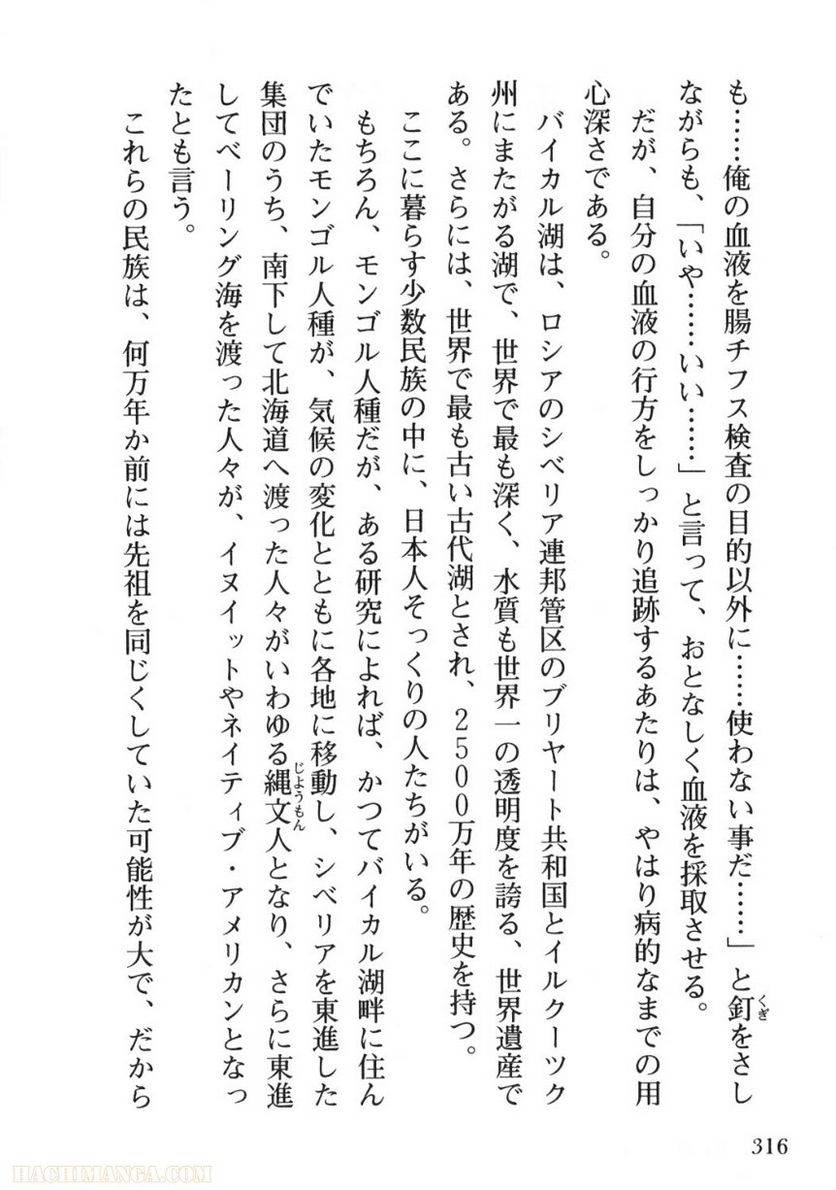 も……俺の血液を腸チフス検査の目的以外に……使わない事だ……」と釘をさし
くぎ
ながらも、「いや……いい……」と言って、おとなしく血液を採取させる。
だが、自分の血液の行方をしっかり追跡するあたりは、やはり病的なまでの用
心深さである。
バイカル湖は、ロシアのシベリア連邦管区のブリヤート共和国とイルクーツク
州にまたがる湖で、世界で最も深く、水質も世界一の透明度を誇る、世界遺産で
ある。さらには、世界で最も古い古代湖とされ、2500万年の歴史を持つ。
ここに暮らす少数民族の中に、日本人そっくりの人たちがいる。
もちろん、モンゴル人種だが、ある研究によれば、かつてバイカル湖畔に住ん
でいたモンゴル人種が、気候の変化とともに各地に移動し、シベリアを東進した
集団のうち、南下して北海道へ渡った人々がいわゆる縄文人となり、さらに東進
じようもん
してベーリング海を渡った人々が、イヌイットやネイティブ・アメリカンとなっ
たとも言う。
これらの民族は、何万年か前には先祖を同じくしていた可能性が大で、だから
316
HACHIMANGA.COM